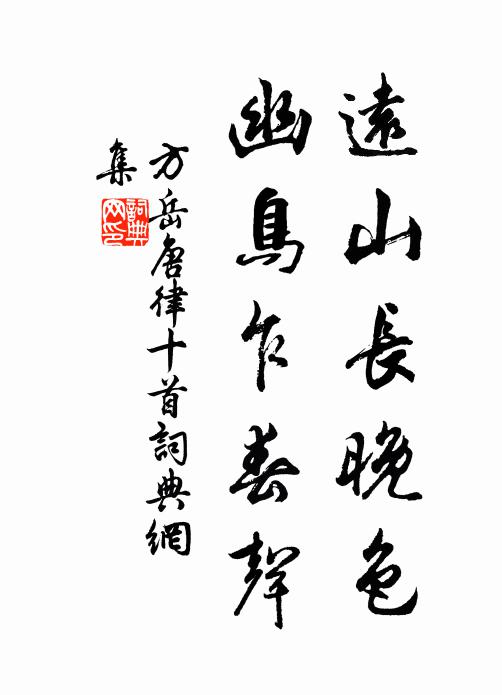 遠山長晚色
幽鳥乍春聲
方岳唐律十首詞典網
集
詞典
网印